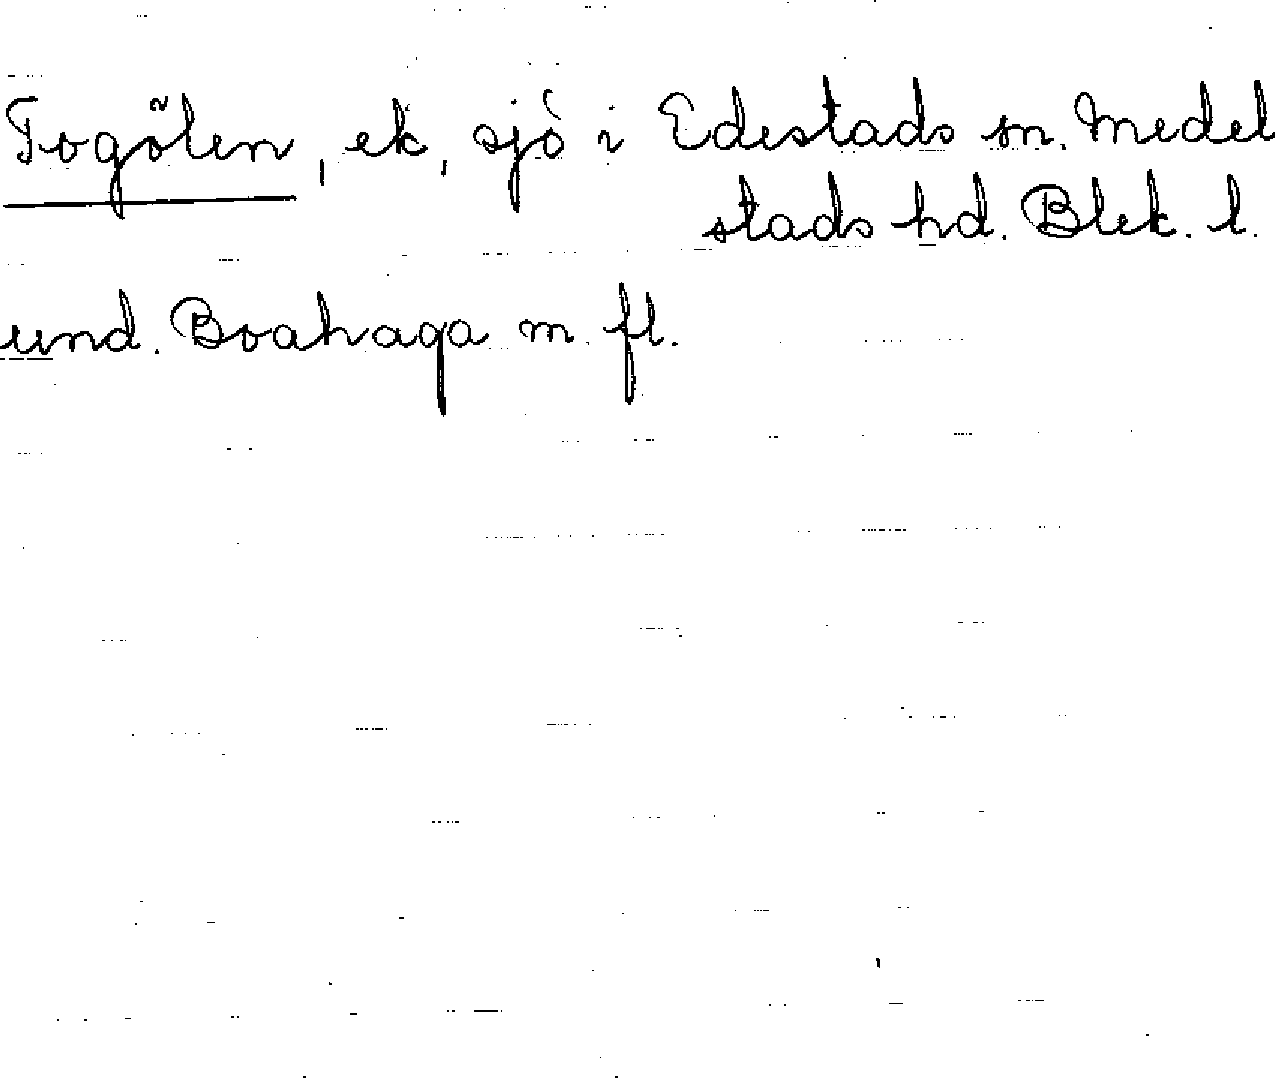 Togölen, ek, sjö i Edestads sn. Medel
stads hd. Blek. l.
und. Boahaga m. fl.